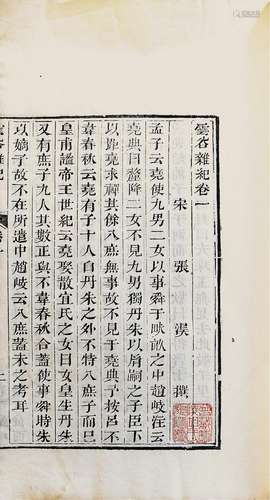 雲谷雜紀卷一
宋 張 淏 撰
孟子云堯使九男二女以事舜于畎畝之中趙岐注云
堯典曰釐降二女不見九男獨丹朱以胤嗣之子臣下
以距堯求禪其餘八庶無事故不見于堯典予按呂不
韋春秋云堯有子十人自丹朱之外不特八庶子而已
皇甫謐帝王世紀云堯娶散宜氏之女曰女皇生丹朱
又有庶子九人其數正與不韋春秋合蓋使事舜時朱
以嫡子故不在所遣中趙岐云八庶蓋未之考耳